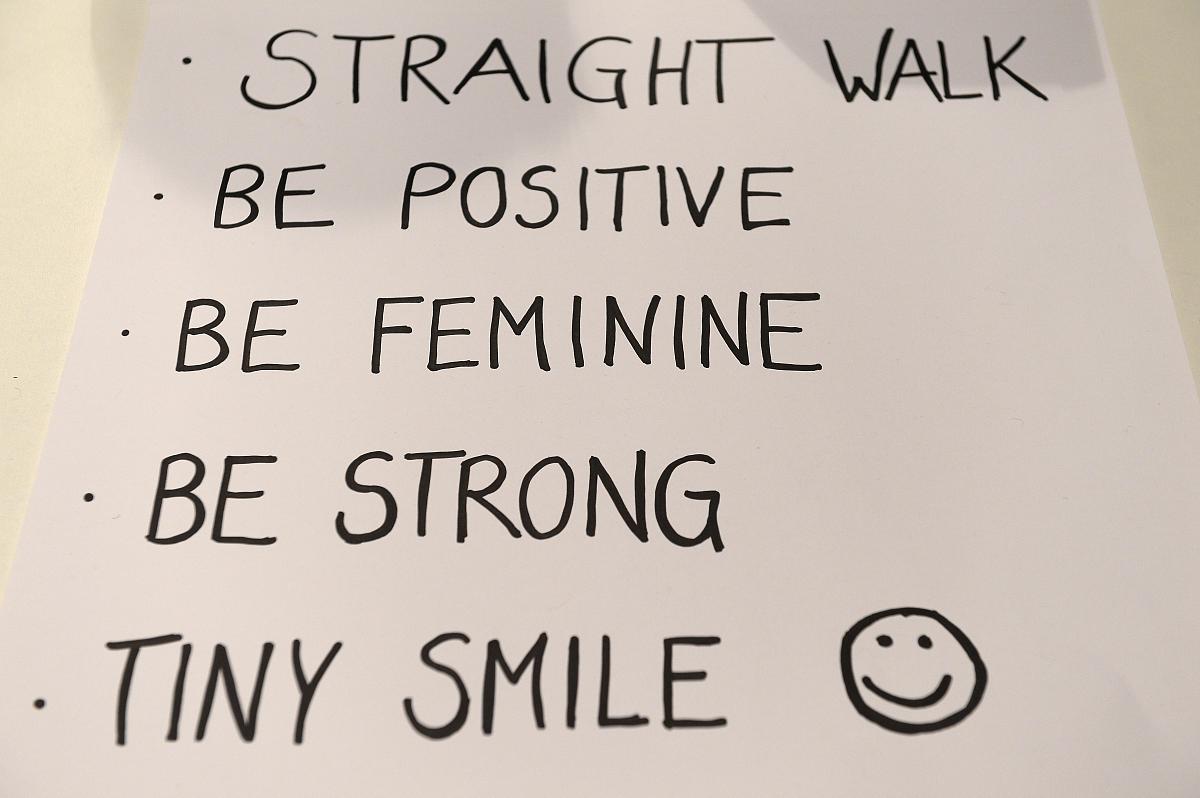 · STRAIGHT WALK
· BE POSITIVE
· BE FEMININE
· BE STRONG
· TINY SMILE ☺